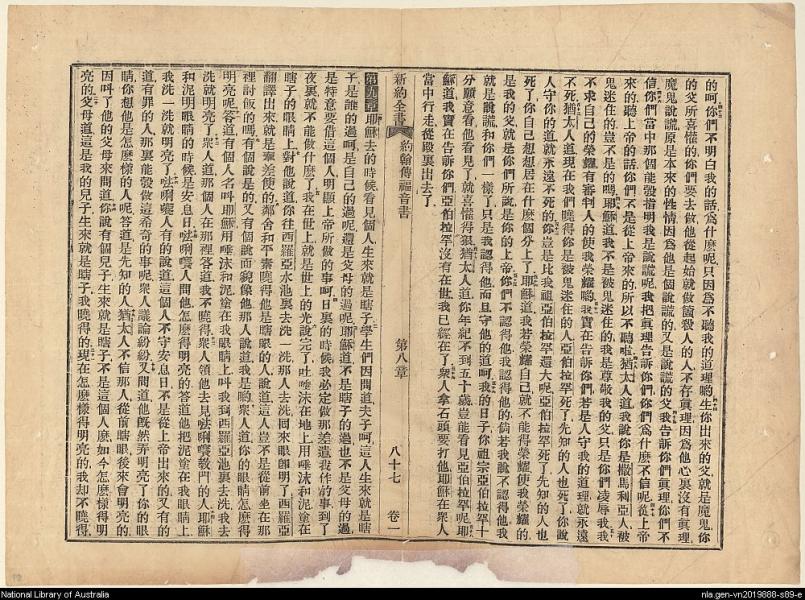 的呵你們不明白我的話爲什麽呢只因爲不聽我的道理喲生你出來的父就是魔鬼你
的父所喜懽的你們要去做他從起始就做箇殺人的人不存眞理因爲他心裏沒有眞理
魔鬼說謊原是本來的性情因爲他是個說謊的又是說謊的父我告訴你們眞理你們不
信你們當中那個能彀指明我是說謊呢我把眞理告訴你們你們爲什麽不信呢從上帝
來的聽上帝的話你們不是從上帝來的所以不聽啦猶太人道我說你是撒馬利亞人被
鬼迷住的豈不是的嗎耶穌道我不是被鬼迷住的我是尊敬我的父只是你們凌辱我我
不求自己的榮耀有審判人的使我榮耀喲我實在告訴你們若是人守我的道理就永遠
不死猶太人道現在我們曉得你是被鬼迷住的人亞伯拉罕死了先知的人也死了你說
人守你的道就永遠不死的你豈是比我祖亞伯拉罕還大呢亞伯拉罕死了先知的人也
死了你自己想想居在什麽個分上了耶穌道我若榮耀自己就不能得榮耀使我榮耀的
是我的父就是你們所說是你的上帝你們不認得他我認得他的倘若我說不認得他我
就是說謊和你們一樣了只是我認得他而且守他的道呵我的日子你祖宗亞伯拉罕十
分願意看他看見了就喜懽得狠猶太人道你年紀不到五十歲豈能看見亞伯拉罕呢耶
穌道我實在告訴你們亞伯拉罕沒有在世我已經在了衆人拿石頭要打他耶穌在衆人
當中行走從殿裏出去了
新約全書
約翰傳福音書
第八章
八十七
卷一
第九章耶穌去的時候看見個人生來就是瞎子學生們因問道夫子呵這人生來就是瞎
子是誰的過呵是自己的過呢還是父母的過呢耶穌道不是瞎子的過也不是父母的過
是特意要借這個人明顯上帝所做的事呵日裏的時候我必定做那差遣我作的事到了
夜裏就不能做什麽了我在世上就是世上的光說完了吐唾沫在地上用唾沫和泥塗在
瞎子的眼睛上對他說道你往西羅亞水池裏去洗一洗那人去洗囘來眼卽明了西羅亞
翻譯出來就是奉差使的鄰舍和平素曉得他是瞎眼的人說道這人豈不是從前坐在那
裡討飯的嗎有個說是的又有個說面貌像他那人說道我是喲衆人道你的眼睛怎麽得
明亮呢答道有個人名叫耶穌用唾沫和泥塗在我眼睛上叫我到西羅亞池裏去洗我去
洗就明亮了衆人道那個人在那裡答道我不曉得衆人領他去見𠵽唎㘔敎門的人耶穌
和泥明眼睛的時候是安息日𠵽唎㘔人問他怎麽得明亮的答道他把泥塗在我眼睛上
我洗一洗就明亮了𠵽唎㘔人有的說道這個人不守安息日不是從上帝出來的又有的
道有罪的人那裏能彀做這希奇的事呢衆人議論紛紛又問道他旣然弄明亮了你的眼
睛你想他是怎麽樣的人呢答道是先知的人猶太人不信那人從前瞎眼後來會明亮的
因叫了他的父母來問道你說有個兒子生來就是瞎子不是這個人麽如今怎麽得明
亮的父母道這是我的兒子生來就是瞎子我曉得的現在怎麽樣得明亮的我却不曉得
National Library of Australia
nla.gen-vn2019888-s89-e